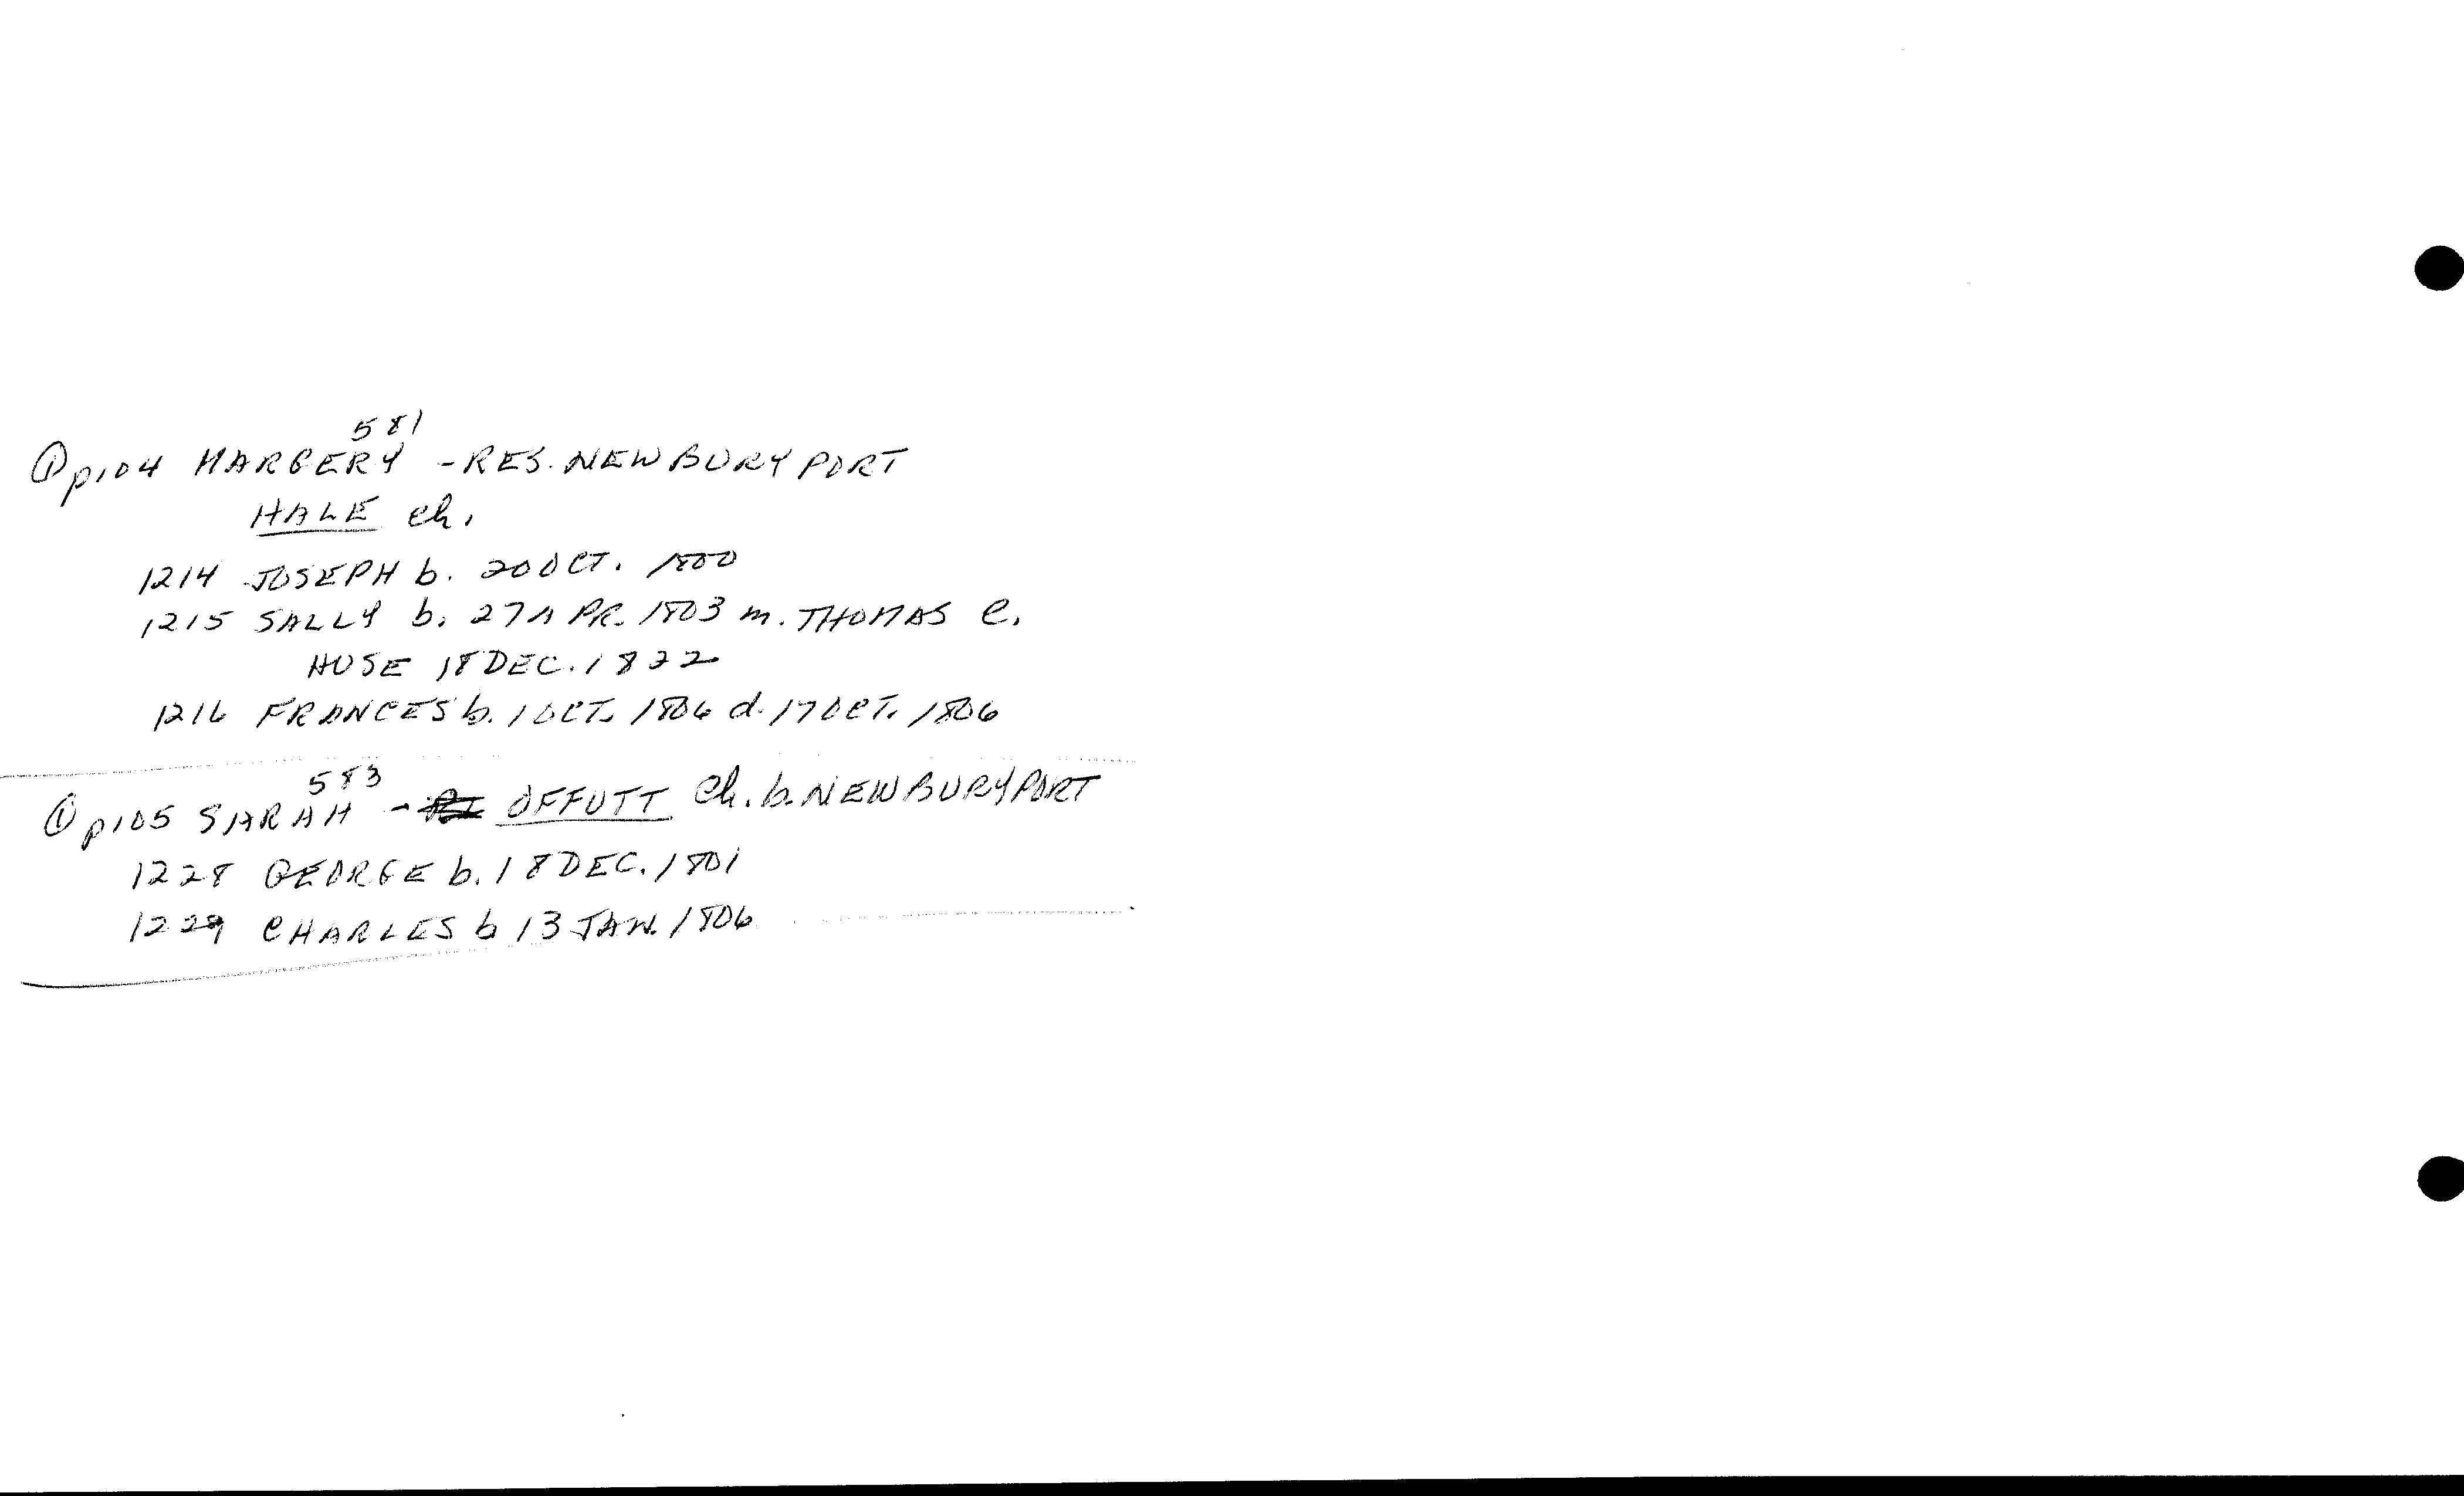 581
① p104 MARGERY - RES. NEWBURYPORT
HALE ch.
1214 JOSEPH b. 20 OCT. 1800
1215 SALLY b. 27 APR. 1803 m. THOMAS C.
HUSE 18 DEC. 1822
1216 FRANCES b. 1 OCT. 1806 d. 17 OCT. 1806
583
① p105 SARAH - OFFUTT ch. b. NEWBURYPORT
1228 GEORGE b. 18 DEC. 1801
1229 CHARLES b 13 JAN. 1806